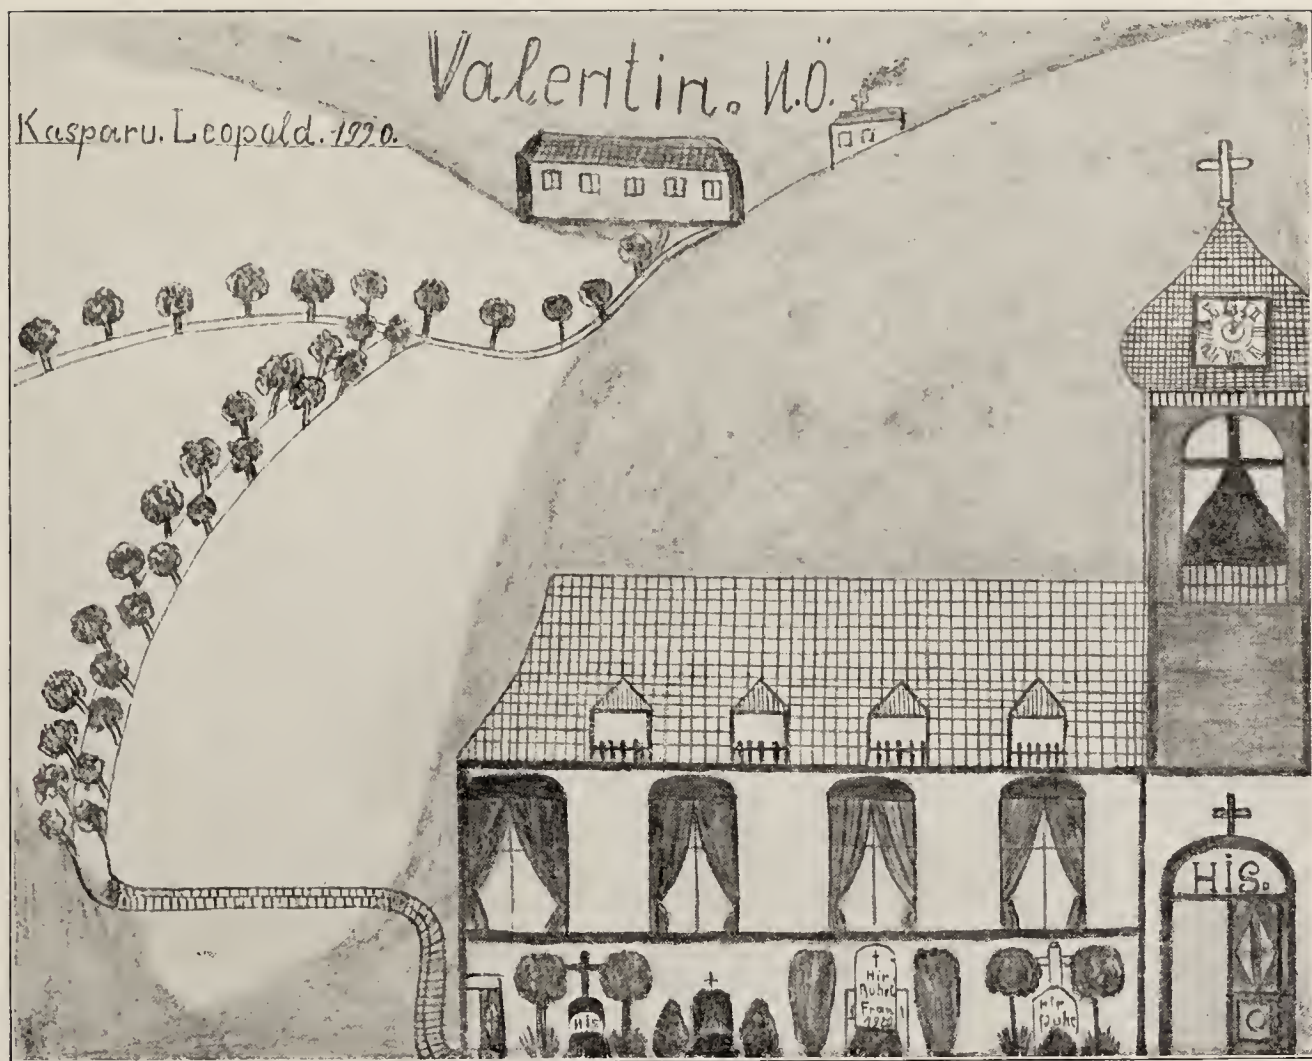 Valentin. N.Ö.
Kasparu. Leopold. 1920.
HiS.
HiS
Hir
Ruhet
Fran
1920
Hir
Ruhe